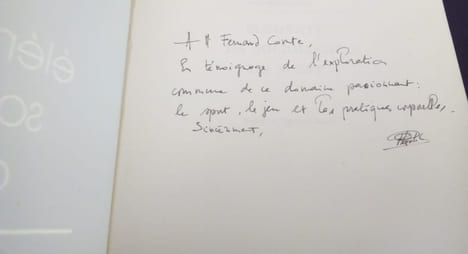 A M Fernand Comte,
En témoignage de l'exploration
commune de ce domaine passionnant :
le sport, le jeu et les pratiques corporelles.
Sincèrement,
élém
so